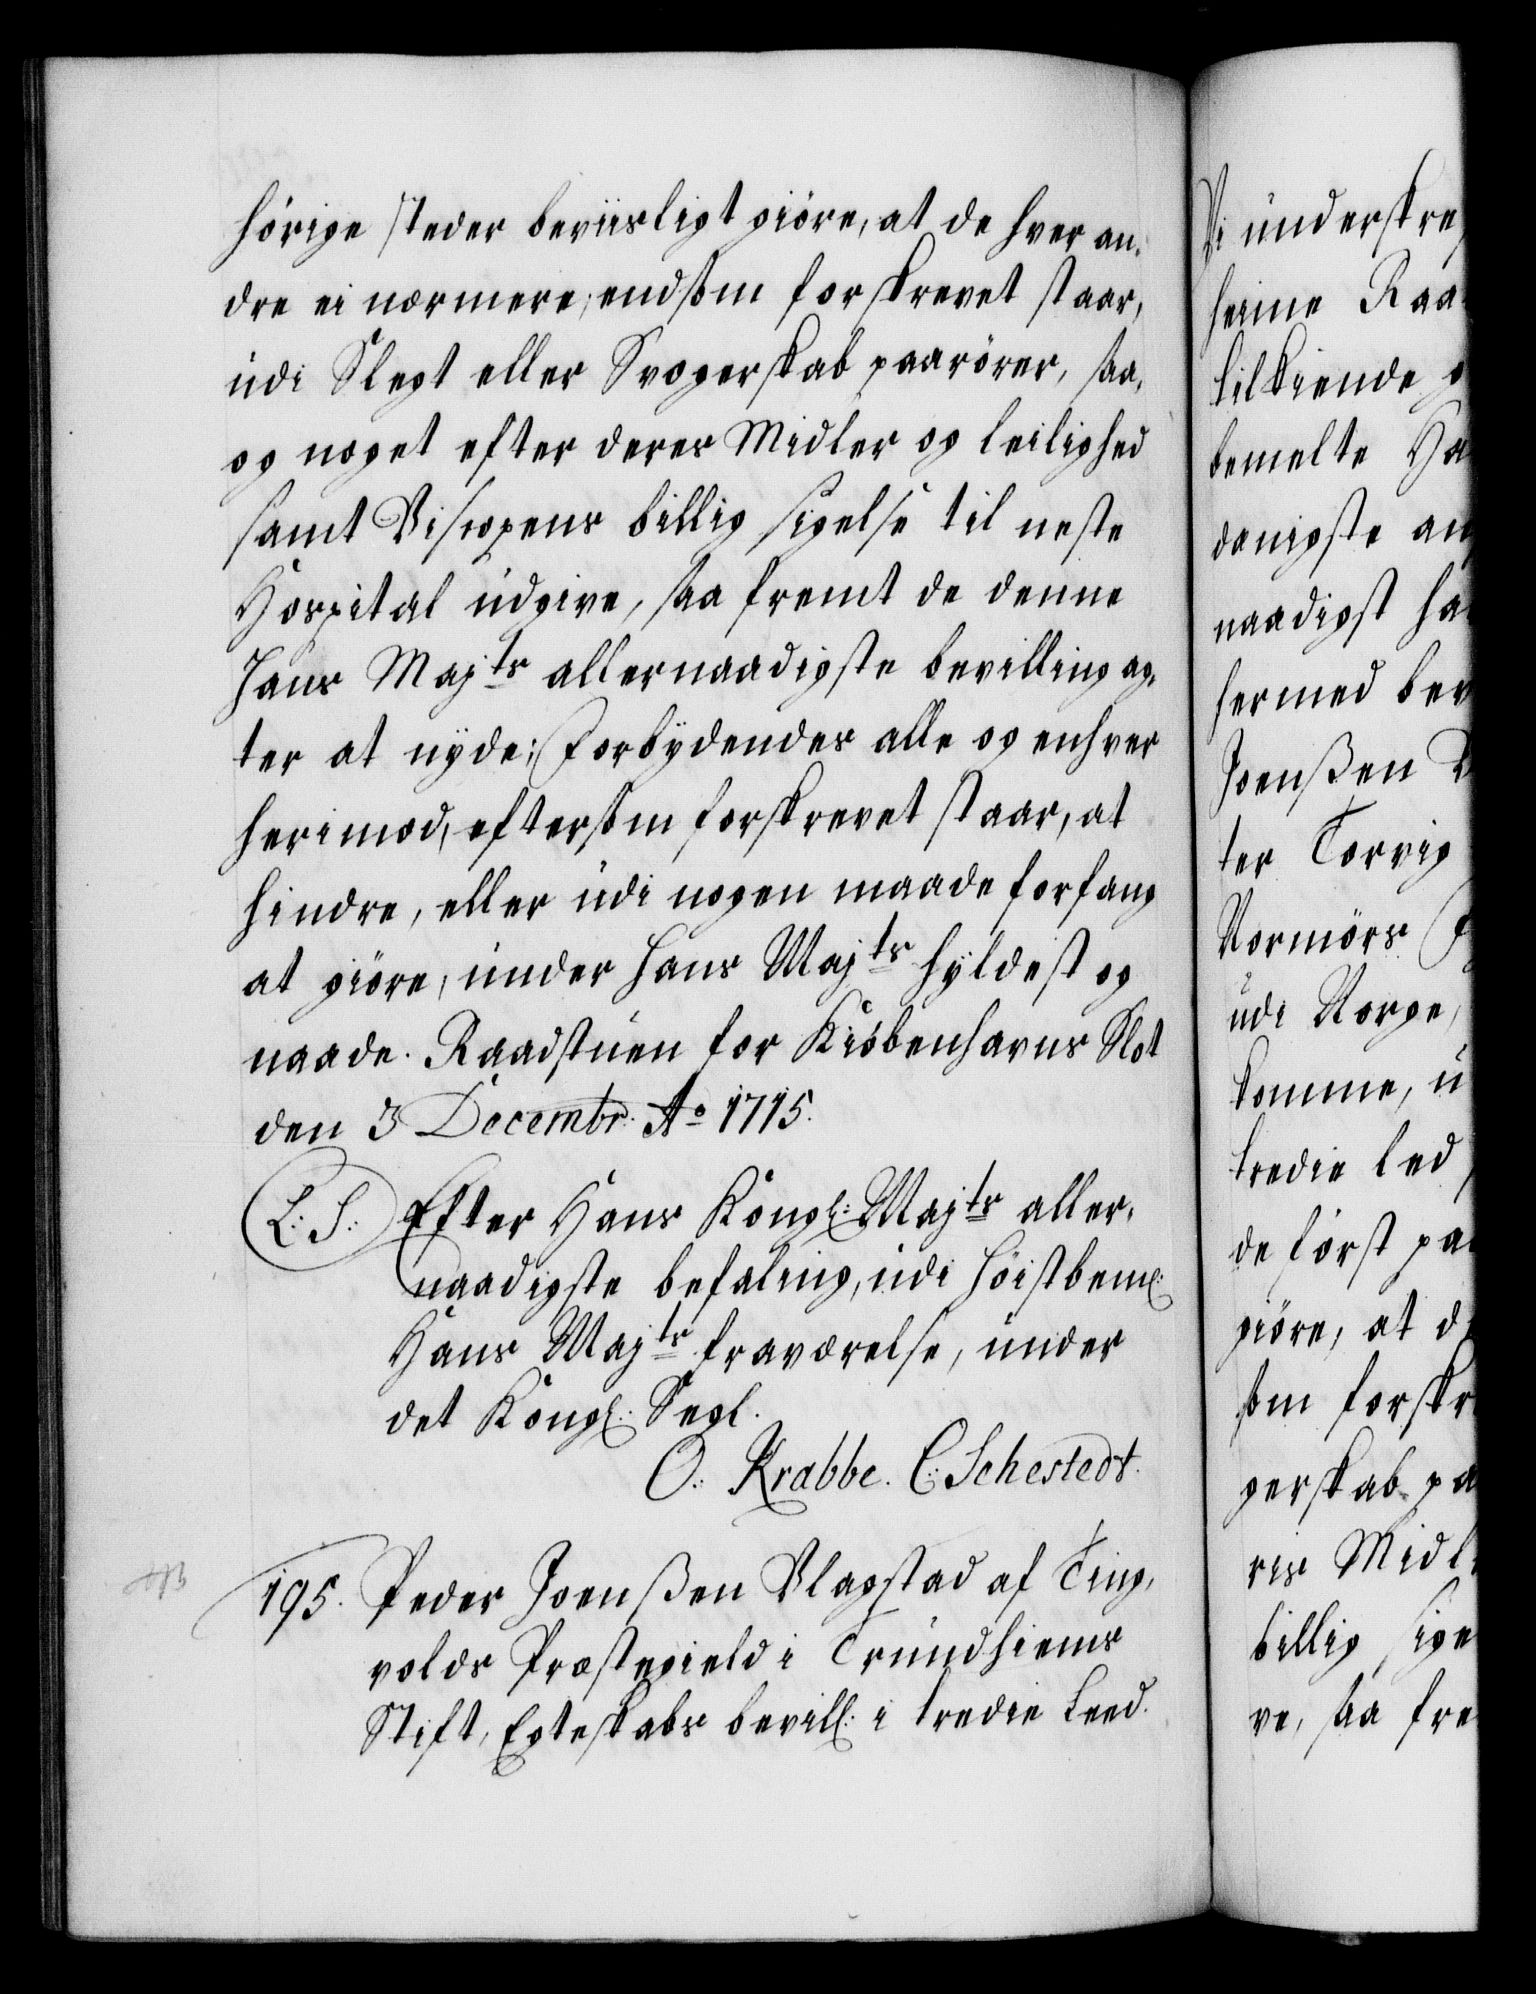 hörige steder beviisligt giöre, at de hver an,
dre ei nærmere, endsom forskrevet staar,
udi Slegt eller Svogerskab paarörer, saa,
og noget efter deres Midler og leilighed
samt Biscopens billig sigelse til neste
Hospital udgive, saa fremt de denne
Hans Majts allernaadigste bevilling ag,
ter at nyde; Forbydendes alle og enhver
herimod, eftersom forskrevet staar, at
hindre, eller udi nogen maade forfang
at giöre, under Hans Majts hyldest og
naade. Raadstuen for Kiöbenhavns Slot
den 3 Decembr: Ao 1715.
L: S: Efter Hans Kongl: Majts aller,
naadigste befaling, udi höistbeml:
Hans Majts fraværelse, under
det Kongl: Segl.
O: Krabbe. C: Schestedt.
NB
195. Peder Joenßen Vlagstad af Ting,
volds Præstegield i Trundhiems
Stift, Egteskabs bevill: i tredie Leed.
Vi underskre
heime Raa
tilkiende g
bemelte Ha
danigste an
naadigst ha
hermed bev
Joenßen V
ter Torvig
Normörs F
udi Norge,
komme, u
tredie led,
de först pa
giöre, at d
som forskr
gerskab pa
ris Midl
billig sige
ve, saa fre